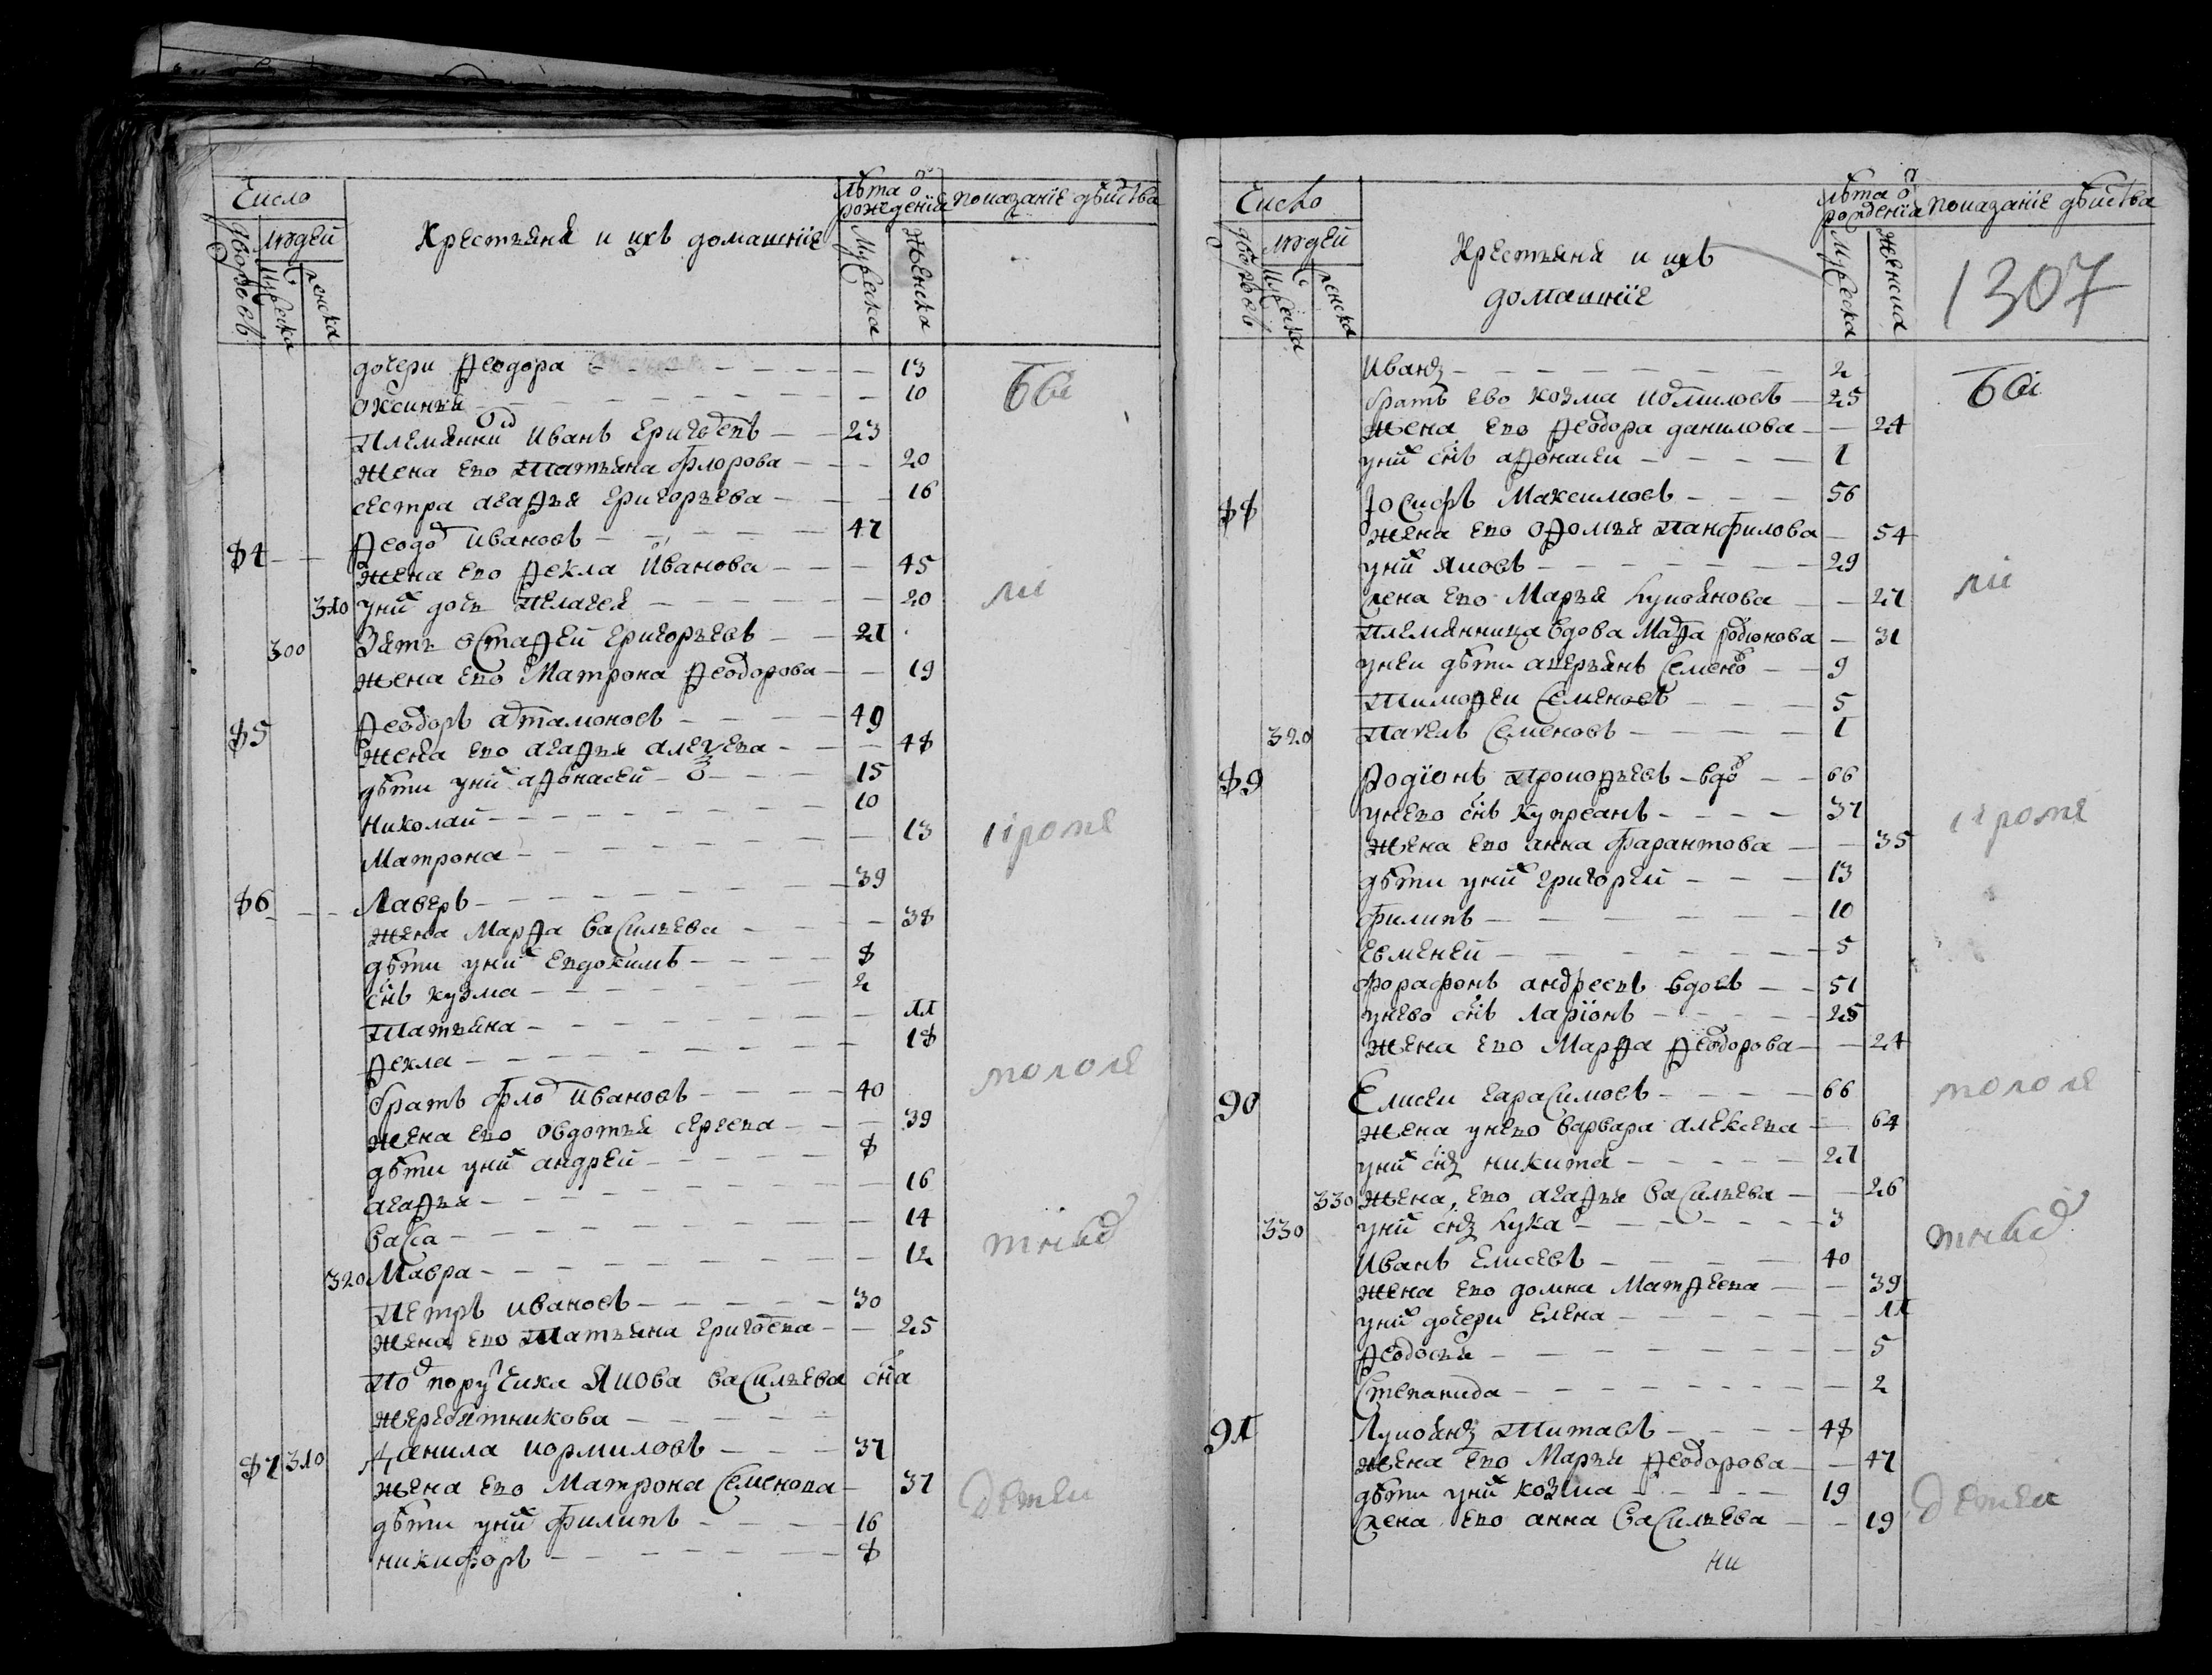 Число
Людей
Дворовъ
Мужеска
женска
Крестьяня и ихъ домашнїе
Лѣта ѿ рожденїя
Мужеска
Женска
показанїе дѣйства
дочери Ѳеодора 13
Оксинья 10
Племянни Иванъ Григоревъ 23
Жена его Татьяна Флорова 20
сестра агаѲья григорьева 16
84 Ѳеодо Ивановъ 47
Жена его Ѳекла Иванова 45
310 у них дочь Пелагея 20
300 Зять ОстаѲей Григорьевъ 21
Жена его Матрона Ѳеодорова 19
85 Ѳеодоръ Артамоновъ 49
Жена его агаѲья алеѯеева 48
дѣти у них аѲонасей 15
Николай 10
Матрона 13
86 Лаверъ 39
Жена МарѲа Васильева 38
дѣти у них Евдокимъ 8
сн҃ъ кузма 2
Татьяна 11
Ѳекла 18
братъ Фло Ивановъ 40
Жена его Овдотья сергеева 39
дѣти у них андрей 8
агаѲья 16
Васа 14
320 Мавра 12
Петръ Ивановъ 30
Жена его Татьяна Григорева 25
По поручика Якова Васильева сн҃а
Жеребятникова
87 310 Данила кормиловъ 37
Жена его Матрона Семенова 37
дѣти у них Филипъ 16
никифоръ 8
бы
ли
кроме
мололе
тныхъ
детей
Число
Людей
Дворовъ
Мужеска
женска
Крестьяня и ихъ
домашнїе
Лѣта ѿ рожденїя
Мужеска
Женска
показанїе дѣйства
1307
Иванъ 2
братъ ево козма кормиловъ 25
Жена его Ѳеодора данилова 24
у них сн҃ъ аѲонасей 1
88 Їосифъ Максимовъ 56
Жена его ОѲомья Панфилова 54
у них Яковъ 29
Жена его Марья лукоянова 27
Племянница вдова МарѲа родионова 31
у неи дѣти аверьянъ Семено 9
ТимоѲеи Семеновъ 5
320 Павелъ Семеновъ 1
89 Родїонъ ПрокоѲьевъ вдо 66
у него сн҃ъ купреанъ 37
Жена его анна Фарантова 35
дѣти у них григорей 13
Филипъ 10
евменей 5
Форафонъ андреевъ вдовъ 51
у нево сн҃ъ Ларїонъ 25
Жена его МарѲа Ѳеодорова 24
90 Елисеи герасимовъ 66
Жена у него варвара алексеева 64
у них сн҃ъ никита 27
330 Жена его агаѲья Васильева 26
330 у них сн҃ъ лука 3
Иванъ Елисеевъ 40
Жена его домна МатѲеева 39
у них дочери Елена 11
Ѳеодосья 5
Степанида 2
91 Лукоянъ Титаевъ 48
Жена его Марья Ѳеодорова 47
дѣти у них козма 19
Жена его анна Васильева 19
ни
бы
ли
кроме
мололе
тныхъ
детей